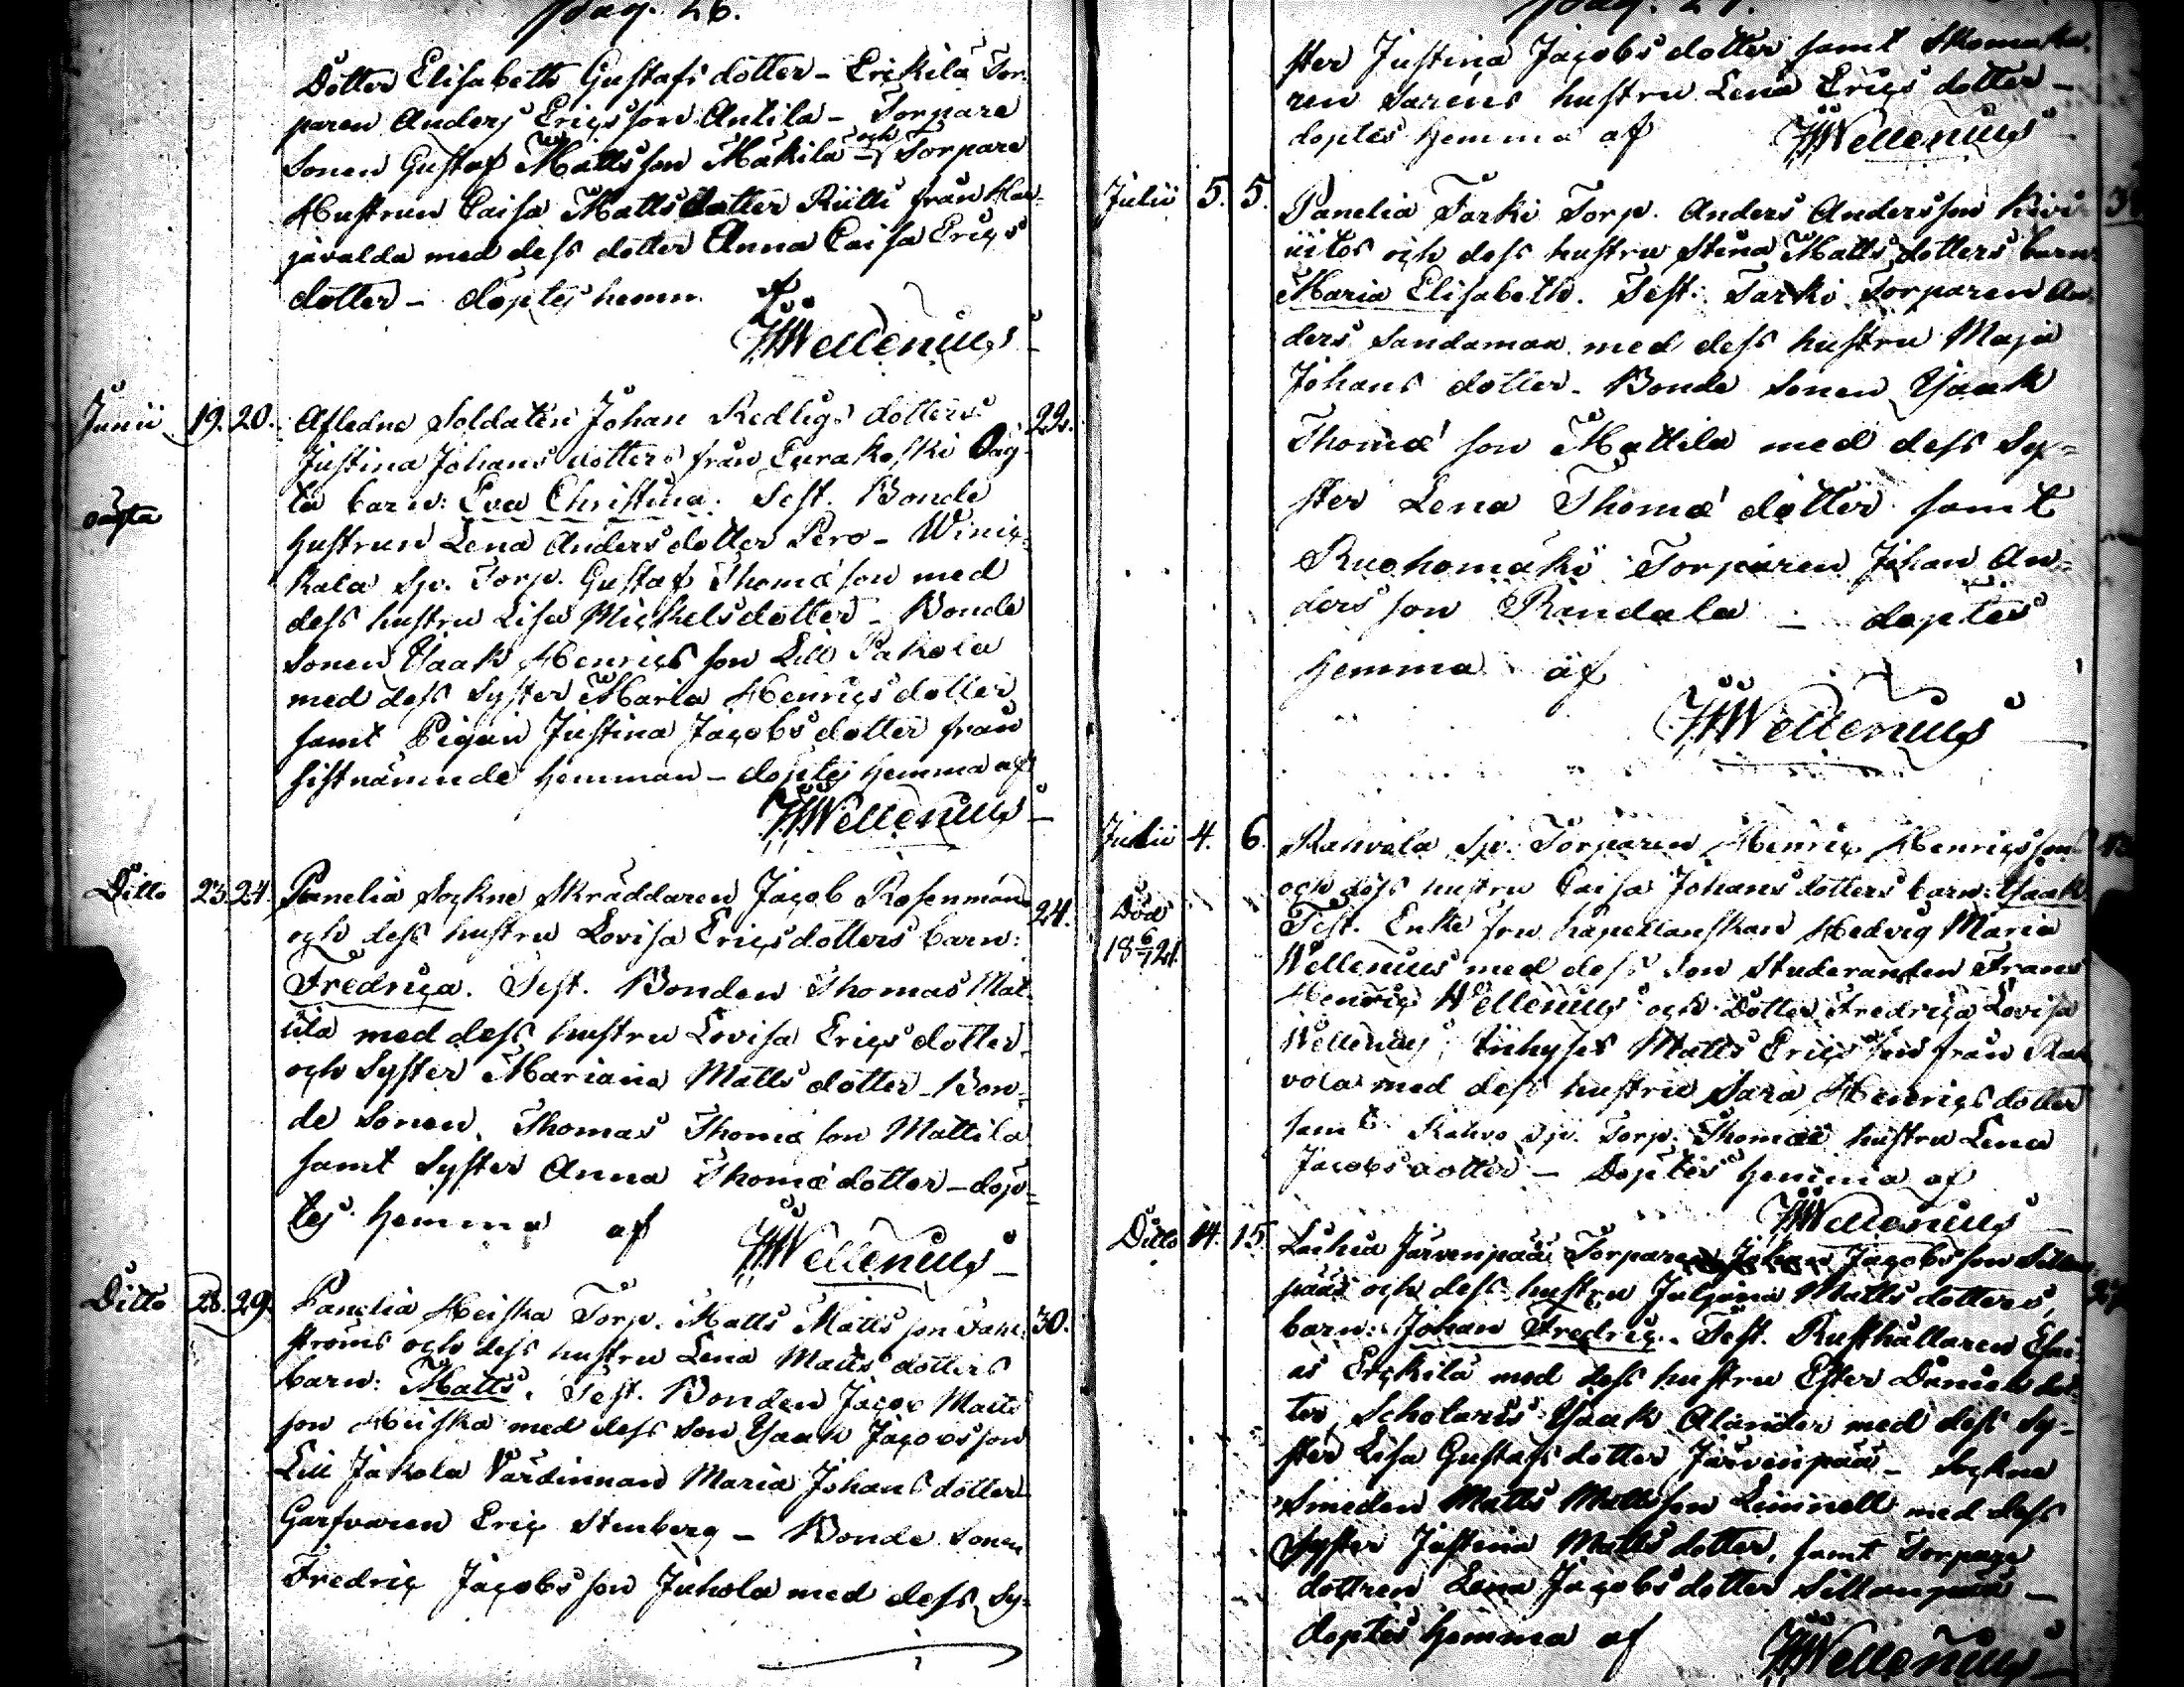 pag. 26.
Dotter Elisabeth Gustafs dotter - Erikila Tor-
paren Anders Ericsson Antila - Torpare
Sonen Gustaf Mattsson Mäkilä och Torpare
Hustrun Caisa Matts dotter Riitti från
javalda med dess dotter Anna Caisa Erics
dotter - döptes hemma af
HWellenius
Junii 19. 20. Afledne Soldaten Johan Redligs dotters 22.
Justina Johans dotters från Eurakoski
oägta
ta barn: Eva Christina. Test. Bonde
hustrun Lena Anders dotter Pero - Winic-
kala Sp. Torp. Gustaf Thomæ son med
dess hustru Lisa Michels dotter - Bonde
Sonen Ysaak Henrics son Lill Pakola
med dess Syster Maria Henrics dotter
samt Pigan Justina Jacobs dotter från
sistnämnde hemman - döptes hemma af
HWellenius
Ditto 23. 24. Panelia Sockne Skräddaren Jacob Rosenman 24.
och dess hustru Lovisa Erics dotters barn:
Fredrica. Test. Bonden Thomas Mat-
tila med dess hustru Lovisa Erics dotter
och Syster Mariana Matts dotter - Bon-
de Sonen Thomas Thomæ son Mattila
samt Syster Anna Thomæ dotter - döp-
tes hemma af
HWellenius
Ditto 28. 29. Panelia Heiska Torp. Matts Matts son 30.
ströms och dess hustru Lena Matts dotters
barn: Matts. Test. Bonden Jacob Matts
son Heiska med dess Son Ysaak Jacobsson
Lill Jakola Värdinnan Maria Johans dotter
Garfvaren Eric Stenberg - Bonde Sonen
Fredric Jacobs son Juhola med dess Sy-
ster Justina Jacobs dotter samt Skomaka-
ren Sarens hustru Lena Erics dotter -
döptes hemma af HWellenius
Julii 5. 5. Panelia Tarki Torp. Anders Andersson Kivi
iitos och dess hustru Stina Matts dotters barn
Maria Elisabeth. Test. Tarki Torparen An-
ders Sandamaa med dess hustru Maja
Johans dotter - Bonde Sonen Ysaak
Thomæ son Mattila med dess Sy-
ster Lena Thomæ dotter samt
Ruohomäki Torparen Johan An-
ders son Randala - döptes
hemma af
HWellenius
Julii 4. 6. Rahvola Sp. Torparen Henric Henricsson
och dess hustru Caisa Johans dotters barn: Ysaak
Död
18 6/7 21.
Test. Enke fru Kapellanskan Hedvig Maria
Wellenius med dess Son Studeranden Frans
Henric Wellenius och Dotter Fredrica Lovisa
Wellenius; Inhyses Matts Ericsson från Rah
vola med dess hustru Sara Henrics dotter
samt Rahvo Sp. Torp. Thomæ hustru Lena
Jacobs dotter - Döptes hemma af
HWellenius
Ditto 14. 15. Järvenpää Torparen Johan Jacobsson Sillan
pääs och dess hustru Juliana Matts dotters
barn: Johan Fredric. Test. Rusthållaren Esai-
as Erkkilä med dess hustru Ester Daniels dot-
ter, Scholaris Ysaak Alander med dess Sy-
ster Lisa Gustafs dotter Järvenpää - Sockne
Smeden Matts Mattsson Limnell med dess
Syster Justina Matts dotter, samt Torpare
dottren Lena Jacobs dotter Sillanpää -
döptes hemma af
HWellenius